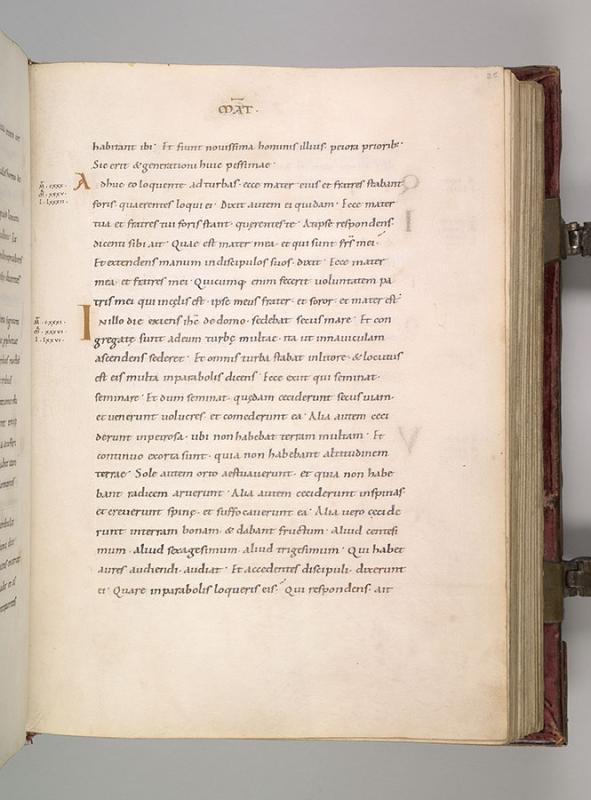 MAT·
habitant ibi · Et fiunt novissima hominis illius · peiora priorib·
Sic erit & generationi huic pessimae ·
Adhuc eo loquente ad turbas · ecce mater eius et fratres stabant
foris · quaerentes loqui ei · Dixit autem ei quidam · Ecce mater
tua et fratres tui foris stant · querentes te · At ipse respondens
dicenti sibi ait · Quae est mater mea · et qui sunt frs̄ mei ·
Et extendens manum in discipulos suos · dixit · Ecce mater
mea · et fratres mei · Quicumq· enim fecerit voluntatem pa
tris mei qui in cęlis est · ipse meus frater · et soror · et mater est·
M·CXXXI·
In illo die exiens ihc̄ de domo · sedebat secus mare · Et con
gregatę sunt ad eum turbę multae · ita ut in naviculam
ascendens sederet · Et omnis turba stabat in litore · & locutus
est eis multa in parabolis dicens · Ecce exiit qui seminat ·
seminare · Et dum seminat · quędam ceciderunt secus viam ·
et venerunt volucres · et comederunt ea · Alia autem ceci
derunt in petrosa · ubi non habebat terram multam · Et
continuo exorta sunt · quia non habebant altitudinem
terrae · Sole autem orto aestuaverunt · et quia non habe
bant radicem aruerunt · Alia autem ceciderunt in spinas
et creverunt spinę · et suffocaverunt ea · Alia vero cęcide
runt in terram bonam · & dabant fructum · aliud centesi
mum · aliud sexagesimum · aliud trigesimum · Qui habet
aures audiendi · audiat · Et accedentes discipuli · dixerunt
ei · Quare in parabolis loqueris eis · Qui respondens · ait